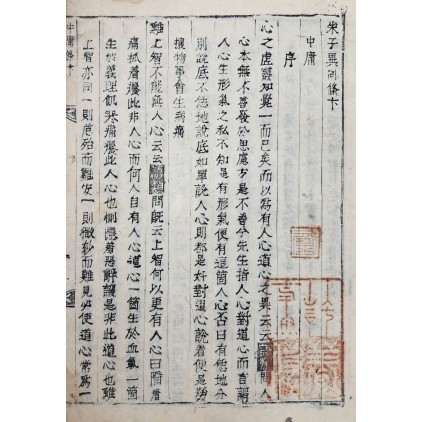 朱子異同條卞
中庸
序
心之虛靈知覺一而已矣而以爲有人心道心之異云云問人
心本無不善發於思慮方是不善今先生指人心對道心而言謂
人心生形氣之私不知是有形氣便有這箇人心否曰有恁地分
別說底不恁地說底如單說人心則都是好對道心說着便是勞
攘物事會生病痛
雖上智不能無人心云云問旣云上智何以更有人心曰掐着
痛抓着癢此非人心而何人自有人心道心一箇生於血氣一箇
生於義理飢寒痛癢此人心也惻隱羞惡辭讓是非此道心也雖
上智亦同一則危殆而難安一則微妙而難見必使道心常爲一
中庸條卞